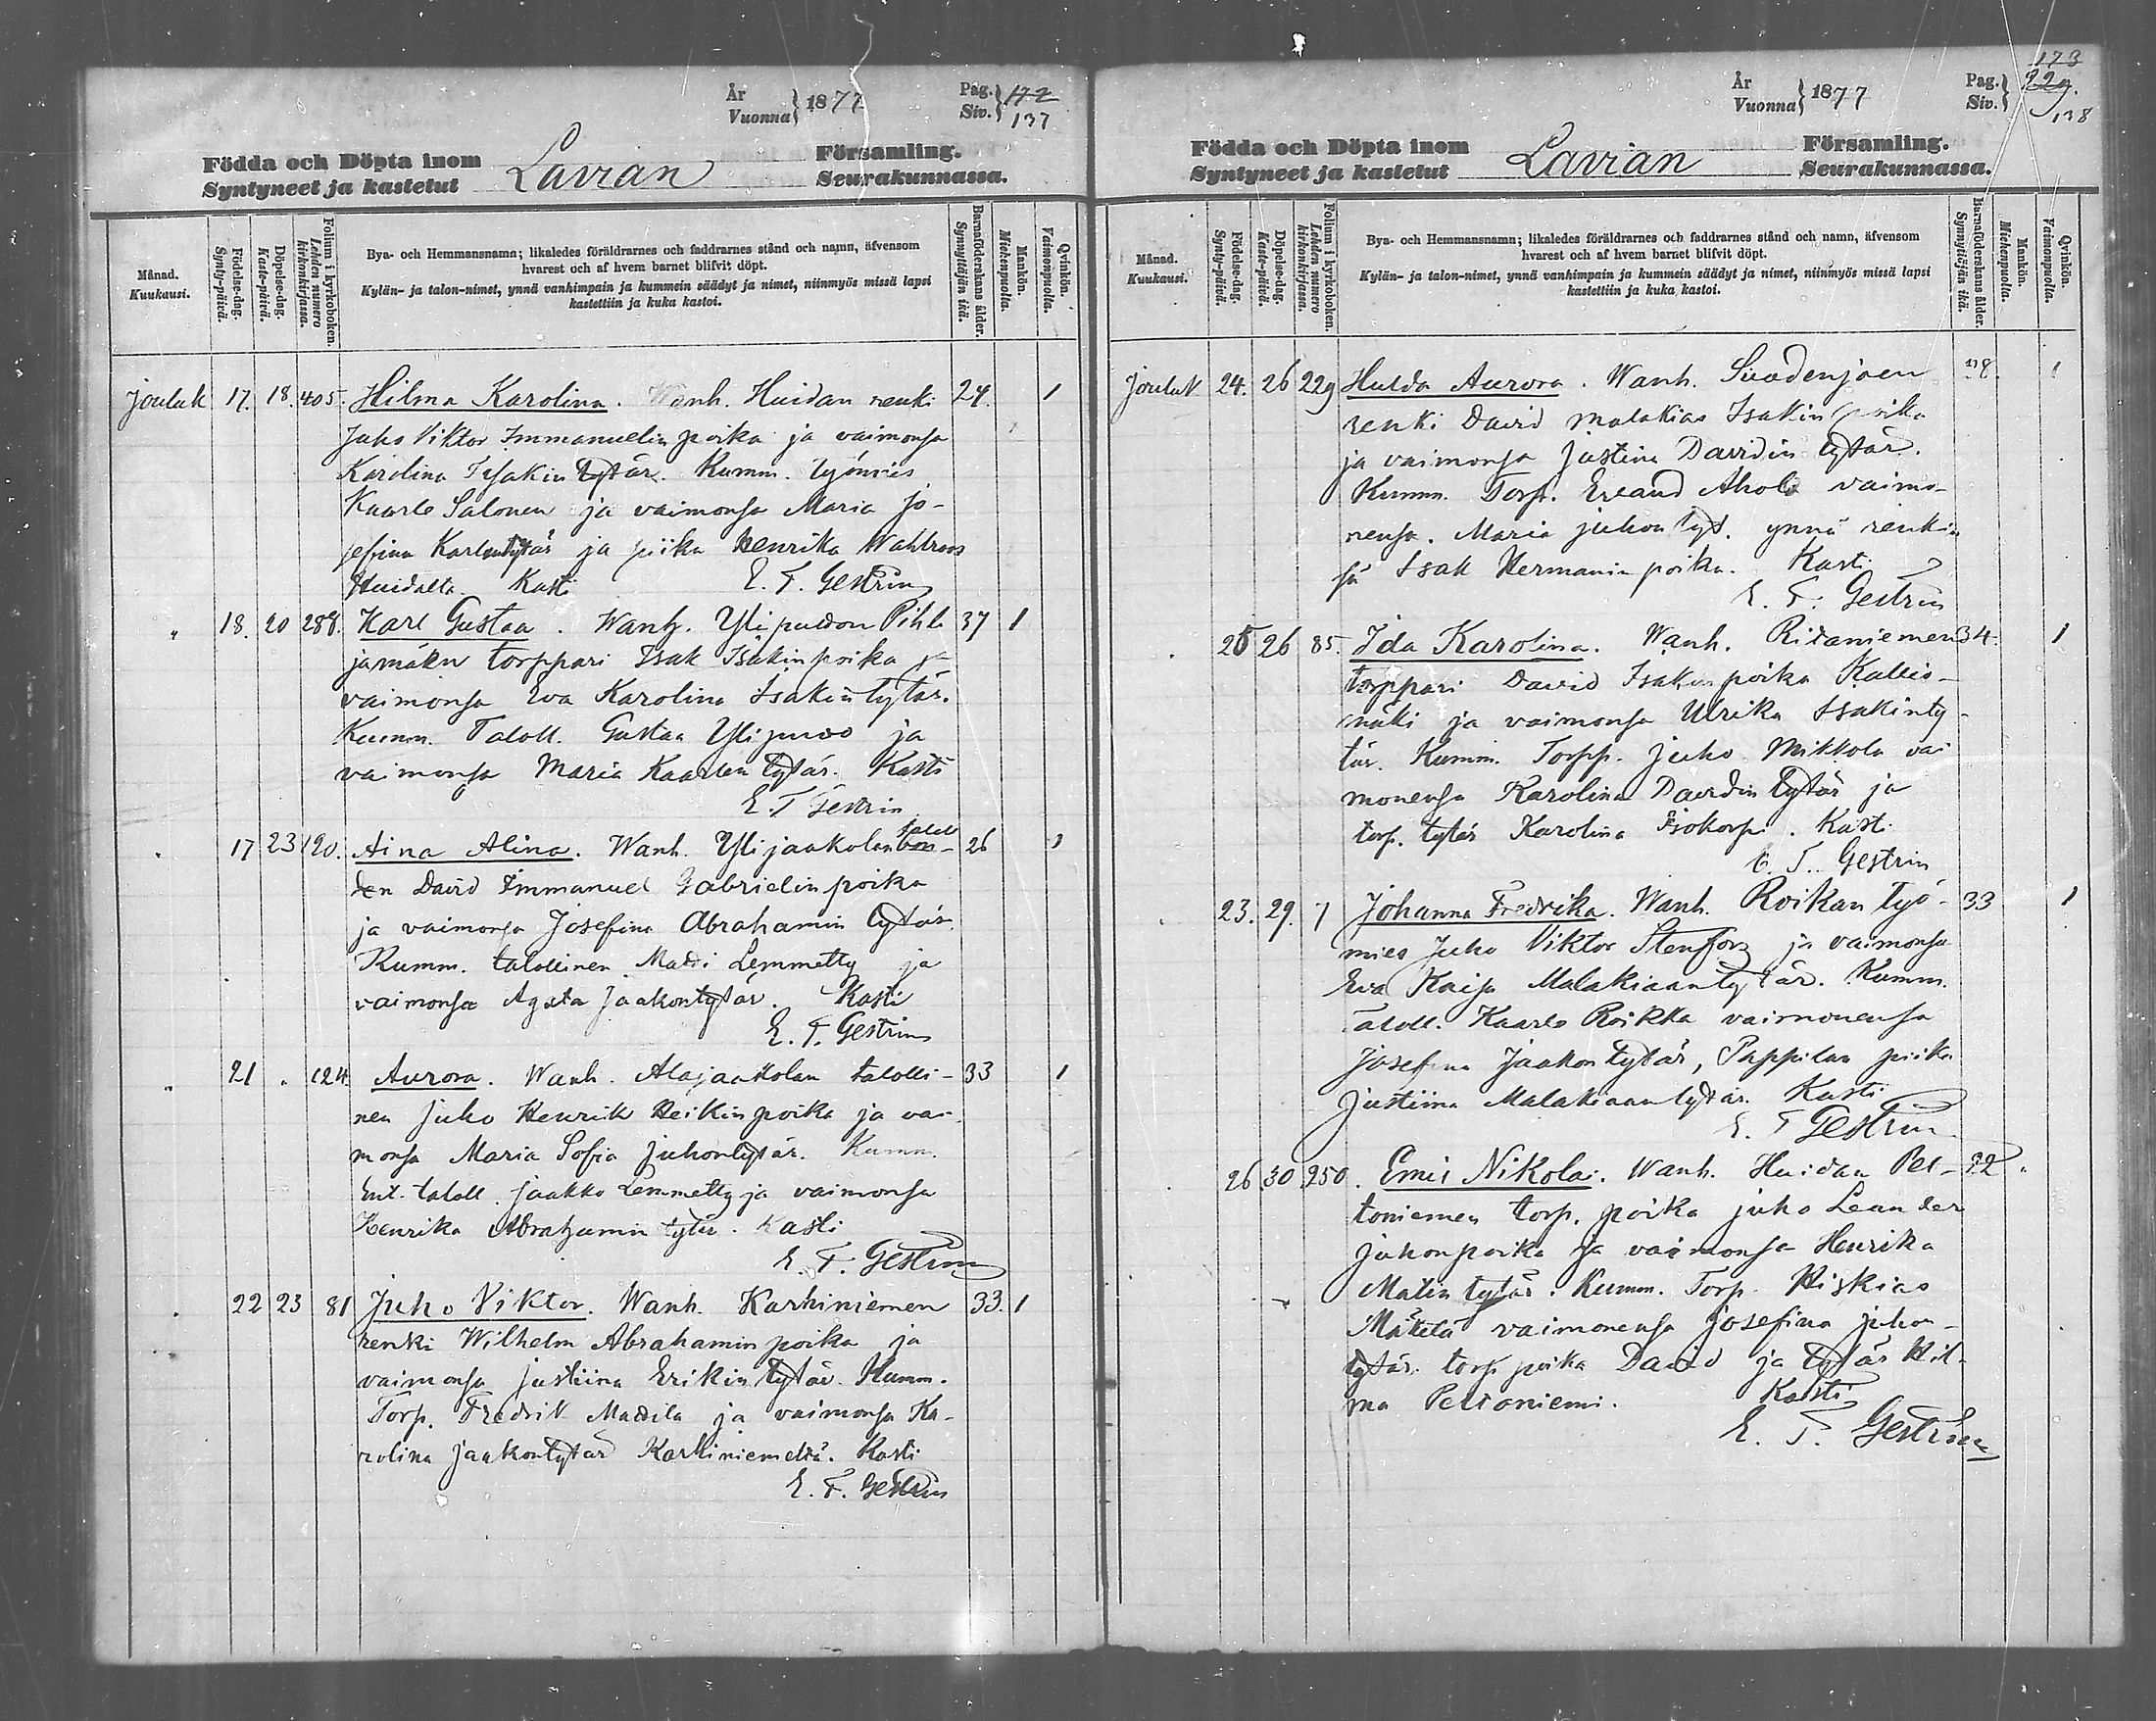 År
Vuonna } 1877
Pag.
Siv. } 172
137
Födda och Döpta inom
Syntyneet ja kastetut
Lavian
Församling.
Seurakunnassa.
Månad.
Kuukausi.
Födelse-dag.
Synty-päivä.
Döpelse-dag.
Kaste-päivä.
Folium i kyrkoboken.
Lehden numero kirkonkirjassa.
Bya- och Hemmansnamn; likaledes föräldrarnes och faddrarnes stånd och namn, äfvensom
hvarest och af hvem barnet blifvit döpt.
Kylän- ja talon-nimet, ynnä vanhimpain ja kummein säädyt ja nimet, niinmyös missä lapsi
kastettiin ja kuka kastoi.
Barnaföderskans ålder.
Synnyttäjän ikä.
Mankön.
Miehenpuolia.
Qvinkön.
Vaimonpuolia.
Jouluk 17. 18. 405. Hilma Karolina. Wanh. Huidan renki 24. 1
Juho Viktor Immanuelin poika ja vaimonsa
Karolina Isakin tytär. Kumm. työmies
Kaarlo Salonen ja vaimonsa Maria Jo-
sefina Karlentytär ja piika Henrika Wahlroos
Huidalta. Kasti E. F. Gestrin
" 18. 20 288. Karl Gustaa. Wanh. Ylipuidon Pihla 37 1
jamäen torppari Isak Isakinpoika ja
vaimonsa Eva Karolina Isakin tytär.
Kumm. Taloll. Gustaa Ylijuvo ja
vaimonsa Maria Kaarlen tytär. Kasti
E. F Gestrin
" 17 23 120. Aina Alina. Wanh. Ylijaakolan taloll 26 1
den David Immanuel Gabrielin poika
ja vaimonsa Josefina Abrahamin tytär.
Kumm. talollinen Matti Lemmetty ja
vaimonsa Agata Jaakontytär. Kasti
E. F. Gestrin
" 21 " 124 Aurora. Wanh. Alajaakolan talolli- 33 1
nen Juho Henrik Heikin poika ja vai-
monsa Maria Sofia Juhontytär. Kumm.
Ent. taloll. Jaakko Lemmetty ja vaimonsa
Henrika Abrahamin tytär. Kasti
E. F. Gestrin
" 22 23 81 Juho Viktor. Wanh. Karhiniemen 33. 1
renki Wilhelm Abrahamin poika ja
vaimonsa Justiina Erikin tytär. Kumm.
Torp. Fredrik Mattila ja vaimonsa Ka-
rolina Jaakontytär Karhiniemeltä. Kasti
E. F. Gestrin
År
Vuonna } 1877
Pag.
Siv. } 173
229.
138
Födda och Döpta inom
Syntyneet ja kastetut
Lavian
Församling.
Seurakunnassa.
Månad.
Kuukausi.
Födelse-dag.
Synty-päivä.
Döpelse-dag.
Kaste-päivä.
Folium i kyrkoboken.
Lehden numero kirkonkirjassa.
Bya- och Hemmansnamn; likaledes föräldrarnes och faddrarnes stånd och namn, äfvensom
hvarest och af hvem barnet blifvit döpt.
Kylän- ja talon-nimet, ynnä vanhimpain ja kummein säädyt ja nimet, niinmyös missä lapsi
kastettiin ja kuka kastoi.
Barnaföderskans ålder.
Synnyttäjän ikä.
Mankön.
Miehenpuolia.
Qvinkön.
Vaimonpuolia.
Jouluk 24. 26 229 Hulda Aurora. Wanh. Suodenjoen 1
renki David Malakias Isakin poika
ja vaimonsa Justina Davidin tytär.
Kumm. Torp. Erland Ahola vaimo-
nensa. Maria Juhon tyt. ynnä renki-
sä Isak Hermanin poika. Kasti
E. F. Gestrin
" 25 26 85. Ida Karolina. Wanh. Ritaniemen 34. 1
torppari David Isakin poika Kallio-
mäki ja vaimonsa Ulrika Isakinty-
tär. Kumm. Torpp. Juho Mikkola vai
monensa Karolina Davidin tytär ja
torp. tytär Karolina Isokorpi. Kasti
E. F. Gestrin
" 23. 29. 7 Johanna Fredrika. Wanh. Roikan työ- 33 1
mies Juho Viktor Stenfors ja vaimonsa
Eva Kaisa Malakiaantytär. Kumm.
Taloll. Kaarlo Roikka vaimonensa
Josefina Jaakon tytär, Pappilan piika
Justiina Malakiaantytär. Kasti
E. F Gestrin
" 26 30 250. Emil Nikolai. Wanh. Huidan Pel- 32 "
toniemen torp. poika Juho Leander
Juhonpoika ja vaimonsa Henrika
Matin tytär. Kumm. Torp. Hiskias
Mäkelä vaimonensa Josefina Juhon-
tytär. torp poika David ja tytär Hil-
ma Peltoniemi. Kasti
E. F. Gestrin